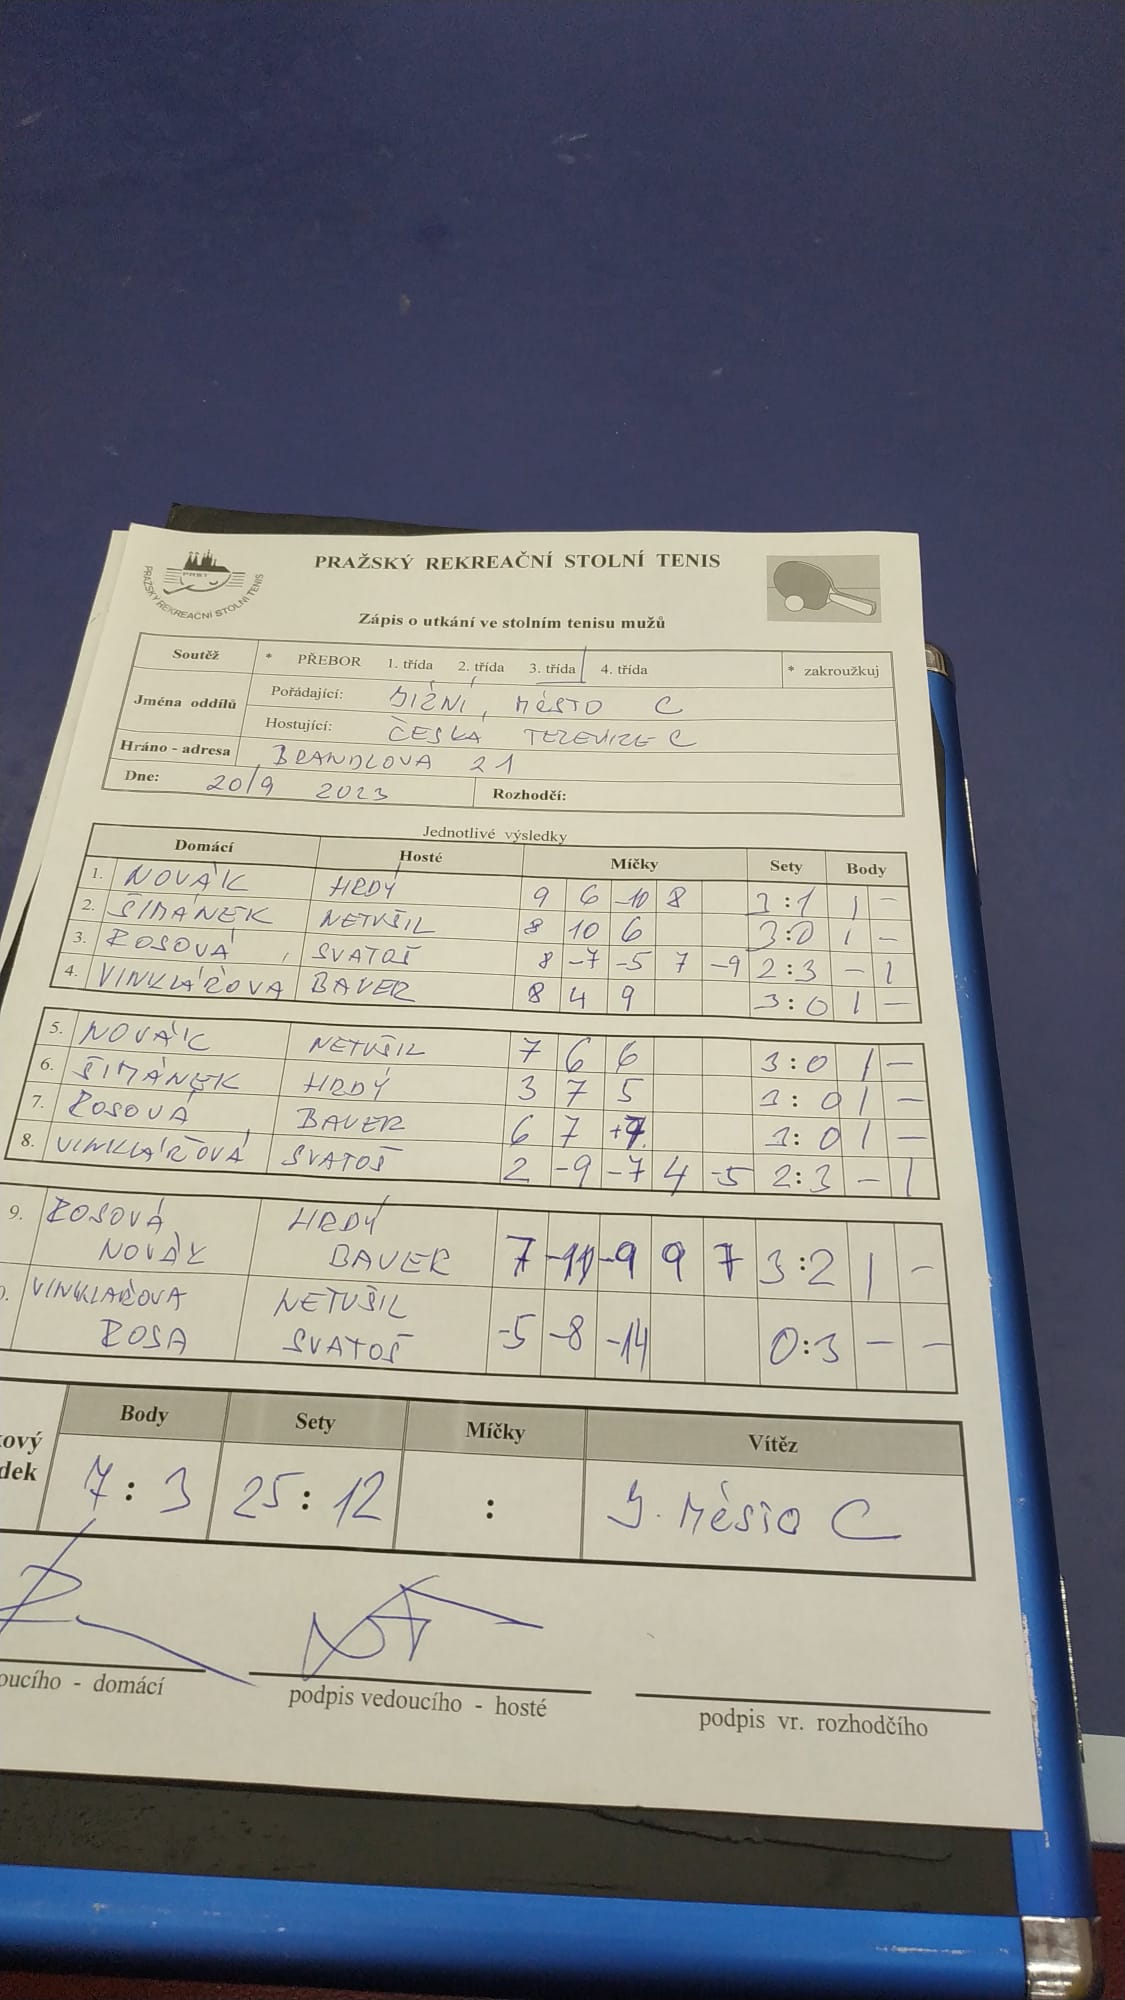 PRAŽSKÝ REKREAČNÍ STOLNÍ TENIS
PRST
PRAŽSKÝ REKREAČNÍ STOLNÍ TENIS
Zápis o utkání ve stolním tenisu mužů
Soutěž * PŘEBOR 1. třída 2. třída 3. třída 4. třída * zakroužkuj
Jména oddílů Pořádající: JIŽNÍ MĚSTO C
Hostující: ČESKÁ TELEVIZE C
Hráno - adresa BRANDLOVA 21
Dne: 20/9 2023 Rozhodčí:
Jednotlivé výsledky
Domácí Hosté Míčky Sety Body
1. NOVÁK HRDÝ 9 6 -10 8 3:1 1 -
2. ŠIMÁNEK NETUŠIL 8 10 6 3:0 1 -
3. ROSOVÁ SVATOŠ 8 -7 -5 7 -9 2:3 - 1
4. VINKLÁŘOVA BAUER 8 4 9 3:0 1 -
5. NOVÁK NETUŠIL 7 6 6 3:0 1 -
6. ŠIMÁNEK HRDÝ 3 7 5 3:0 1 -
7. ROSOVÁ BAUER 6 7 +7 3:0 1 -
8. VINKLÁŘOVÁ SVATOŠ 2 -9 -7 4 -5 2:3 - 1
9. ROSOVÁ HRDÝ
NOVÁK BAUER 7 -11 -9 9 7 3:2 1 -
VINKLAŘOVA NETUŠIL
ROSA SVATOŠ -5 -8 -14 0:3 - -
Body Sety Míčky Vítěz
7:3 25:12 : J. MĚSTO C
oucího - domácí podpis vedoucího - hosté podpis vr. rozhodčího